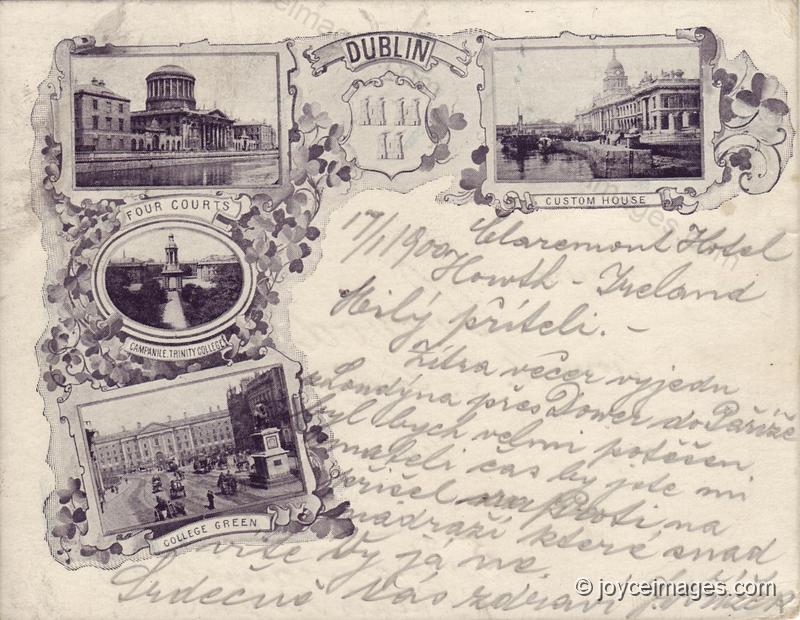 DUBLIN
FOUR COURTS
CUSTOM HOUSE
CAMPANILE, TRINITY COLLEGE
COLLEGE GREEN
17/I 1900 Claremont Hotel
Howth - Ireland
Milý příteli. -
Zítra večer vyjedu
z Londýna přes Dower do Paříže
byl bych velmi potěšen
máteli čas by jste mi
přišel naproti na
nádraží které snad
víte Vy já ne.
Srdečně Vás zdraví
© joyceimages.com